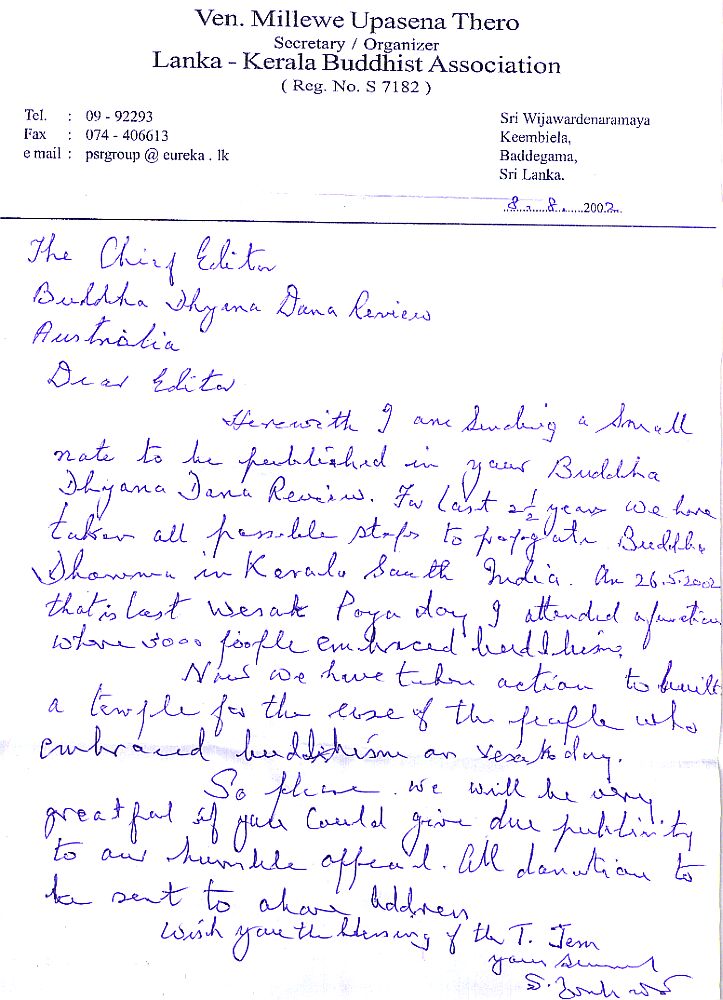 Ven. Millewe Upasena Thero
Secretary / Organizer
Lanka - Kerala Buddhist Association
( Reg. No. S 7182 )
Tel. : 09 - 92293
Fax : 074 - 406613
e mail : psrgroup @ eureka . lk
Sri Wijawardenaramaya
Keembiela,
Baddegama,
Sri Lanka.
8. 8. 2002
The Chief Editor
Buddha Dhyana Dana Review
Australia
Dear Editor
Herewith I am sending a small
note to be published in your Buddha
Dhyana Dana Review. For last 2 1/2 years we have
taken all possible steps to propagate Buddha
Dhamma in Kerala South India. On 26.5.2002
that is last wesak Poya day I attended a function
where 3000 people embraced buddhism.
Now we have taken action to built
a temple for the use of the people who
embraced buddhisme on vesak day.
So please we will be very
greatful if you could give due publicity
to our humble appeal. All donation to
be sent to above address
Wish you the blessing of the T. Jem